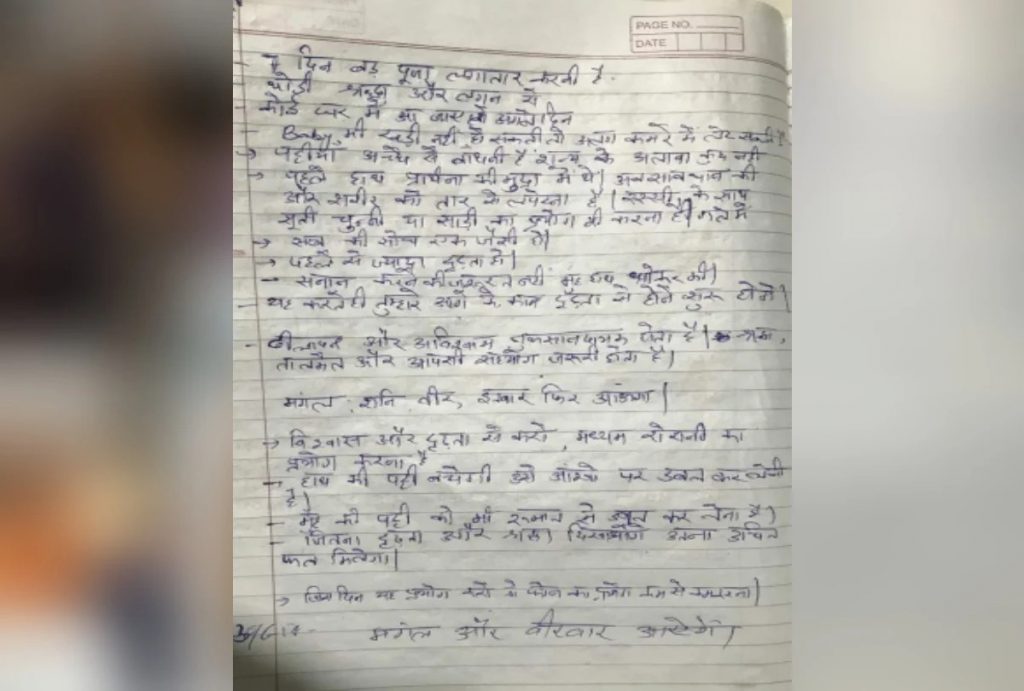 PAGE NO.
DATE
7 दिन बड़ पूजा लगातार करनी है.
थोड़ी श्रद्धा और लगन से
- कोई घर में आ जाए तो अगले दिन
- Baby भी खड़ी नहीं हो सकती तो अलग कमरे में लेट सकती है
→ पट्टीयां अच्छे से बांधनी है शून्य के अलावा कुछ नहीं
→ पहले हाथ प्रार्थना की मुद्रा में थे। अब
और शरीर को तार से लपेटना है। रस्सी के साथ
सूती चुन्नी या साड़ी का प्रयोग भी करना है। गले में
→ सब की सोच एक जैसी हो।
→ पहले से ज्यादा दृढ़ता से।
- सनान करने की जरूरत नहीं मुंह हाथ धोकर करें।
- यह करते ही तुम्हारे आगे के काम दृढ़ता से होने शुरू होंगे।
- ढीलापन और अविश्वास नुकसानदायक होता है। श्रद्धा,
तालमेल और आपसी सहयोग जरूरी होता है।
मंगल, शनि, वीर, इतवार फिर आऊंगा।
→ विश्वास और दृढ़ता से करो, मध्यम रोशनी का
प्रयोग करना है
- हाथ की पट्टी बचेगी उसे आंखों पर डबल कर लेनी
है।
- मुंह की पट्टी को भी रूमाल से डबल कर लेना है।
- जितना दृढ़ता और श्रद्धा दिखाओगे उतना उचित
फल मिलेगा।
→ जिस दिन यह प्रयोग करो तो फोन का प्रयोग कम से कम करना।
मंगल और वीरवार आएंगे।